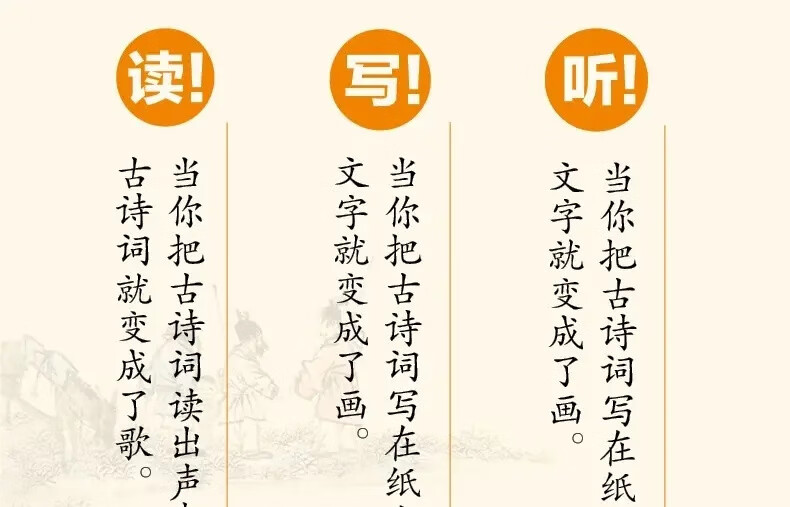 读!
当你把古诗词读出声
古诗词就变成了歌。
写!
当你把古诗词写在纸
文字就变成了画。
听!
当你把古诗词写在纸
文字就变成了画。